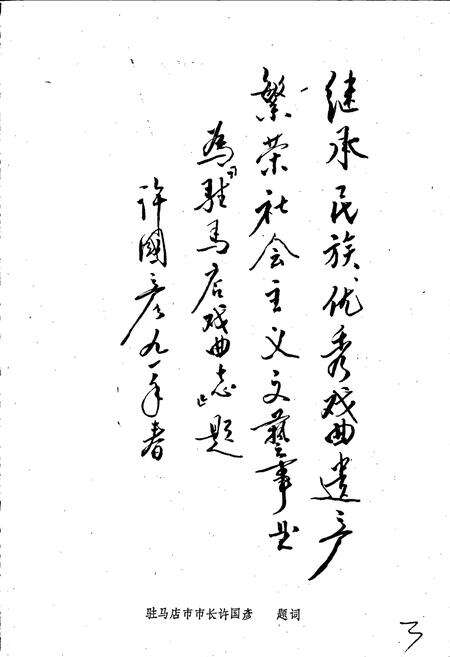 继承民族优秀戏曲遗产
繁荣社会主义文藝事业
为《驻马店戏曲志》题
许國彦九一年春
驻马店市市长许国彦 题词
3